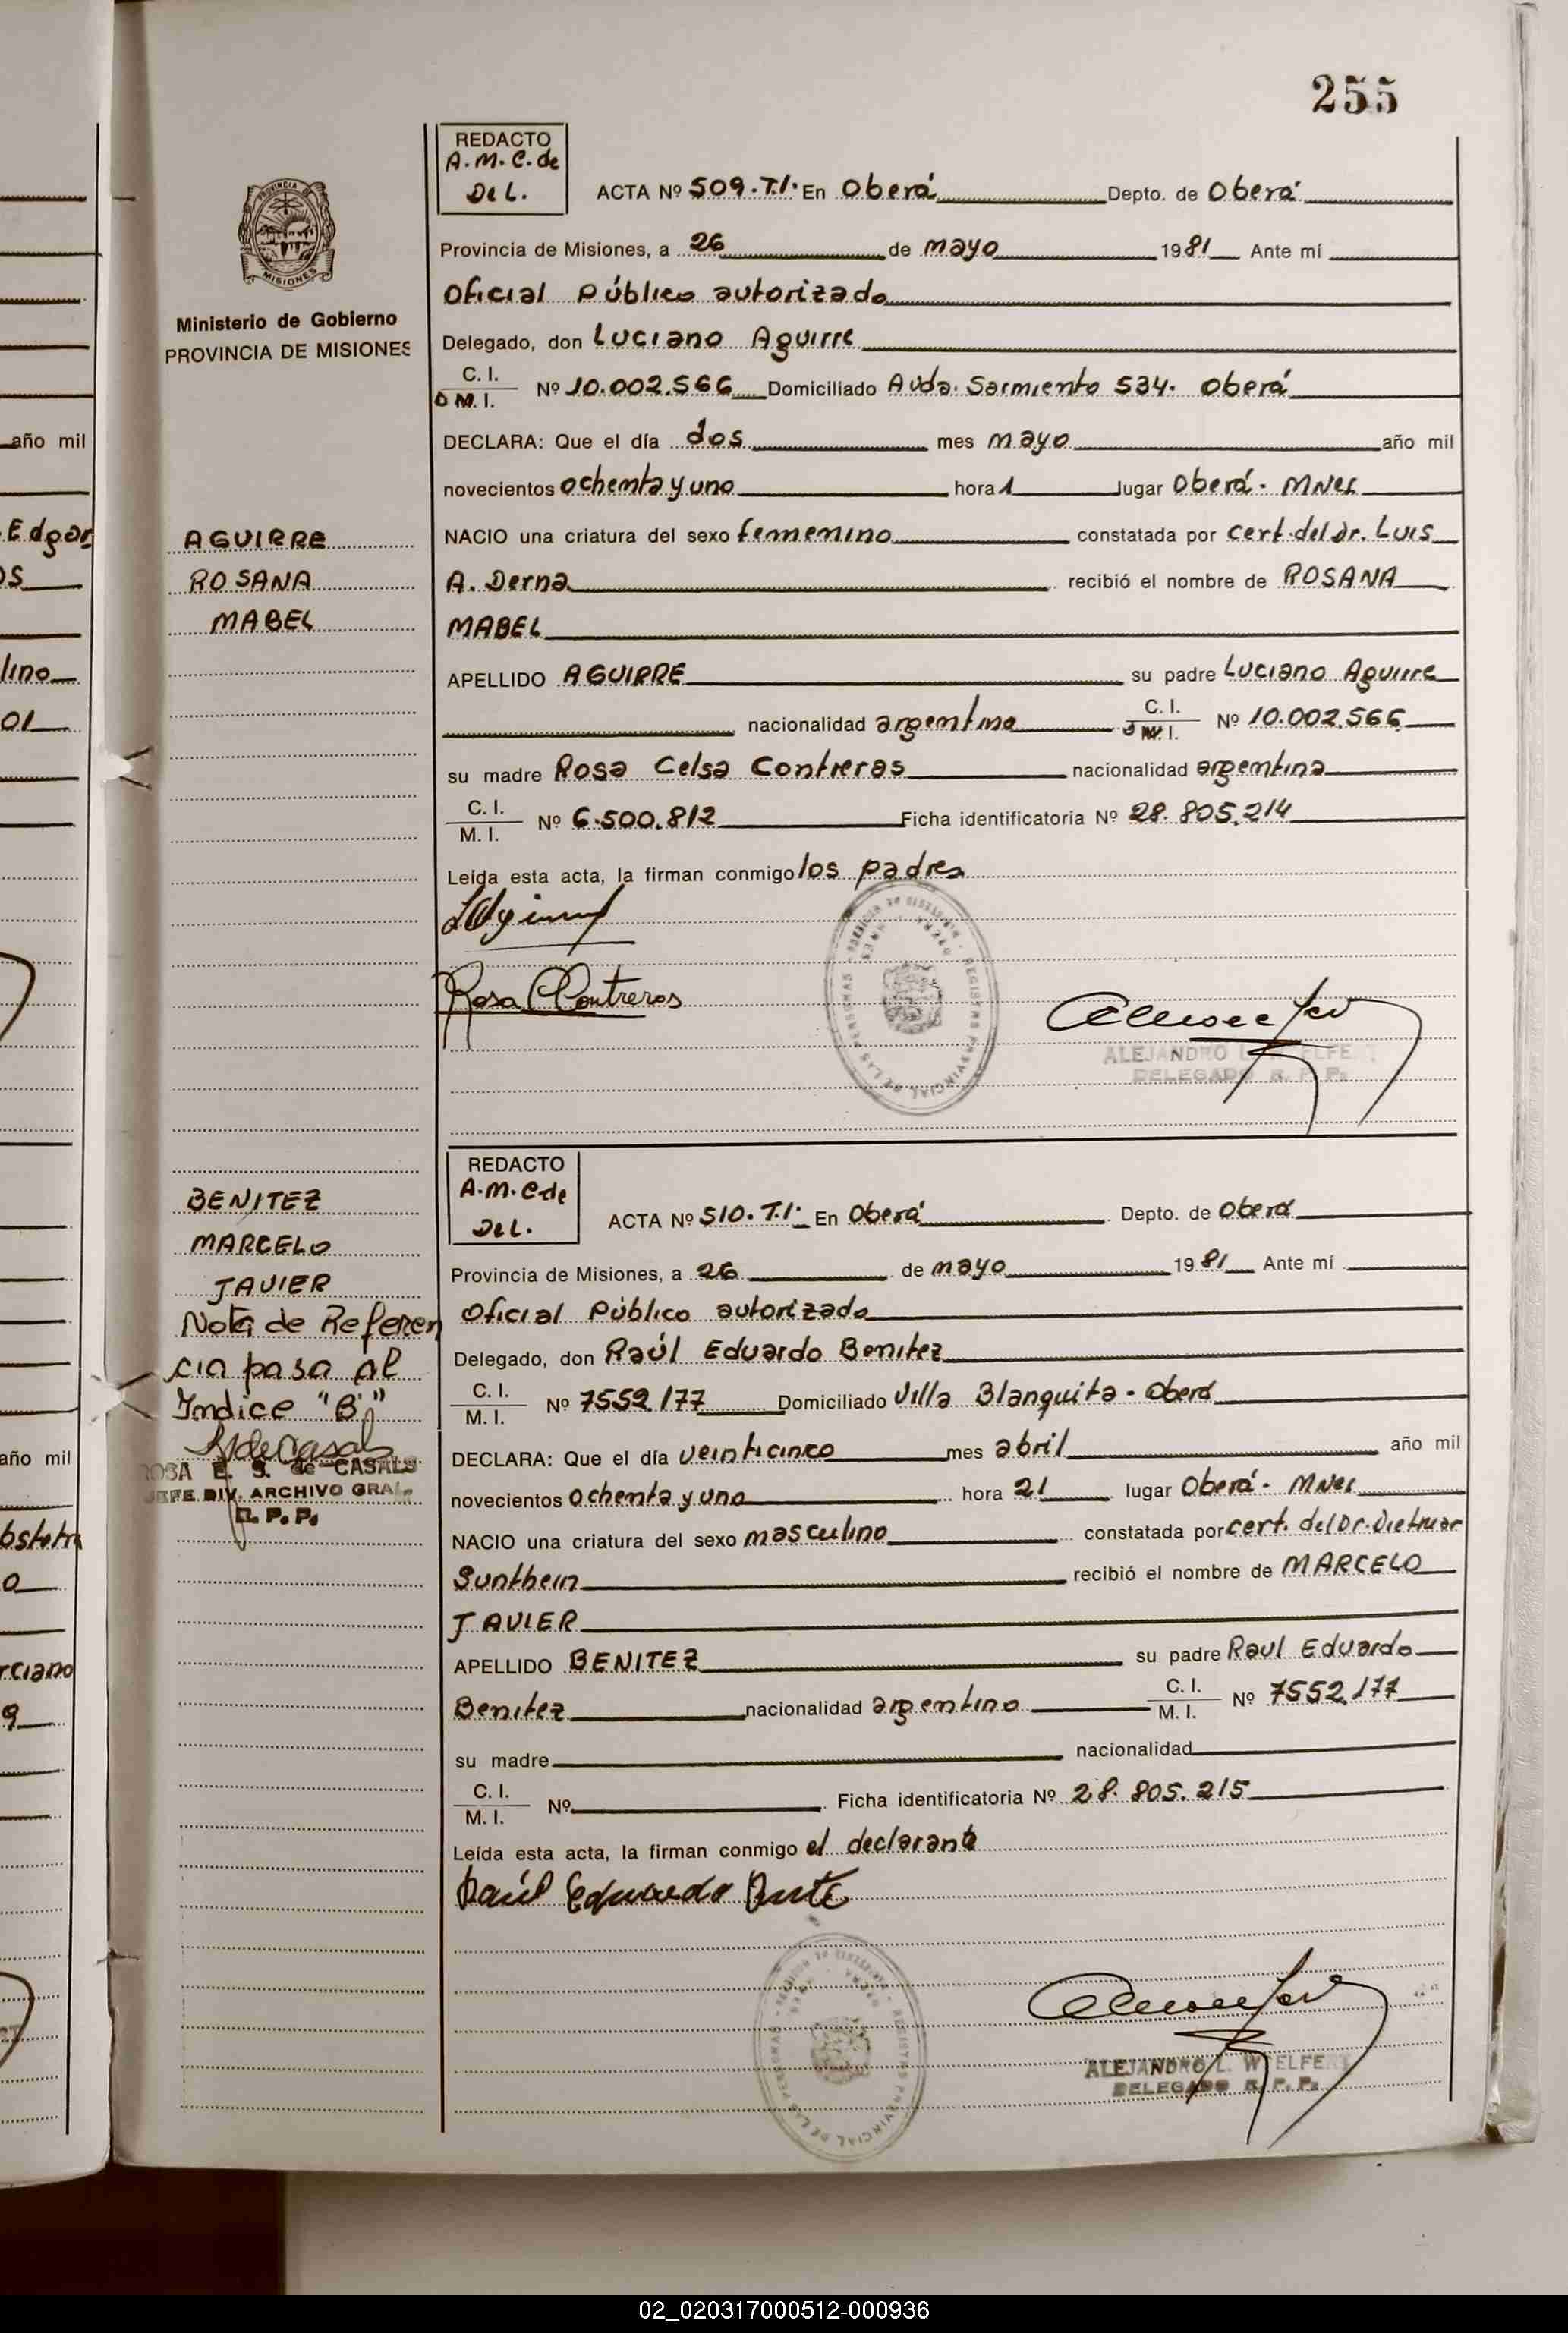 255
REDACTO
A.M.C. de
De L.
ACTA Nº 509.T.I. En Oberá Depto. de Oberá
Provincia de Misiones, a 26 de mayo 1981 Ante mí
Oficial Público autorizado
Delegado, don Luciano Aguirre
C. I.
M. I. Nº 10.002.566 Domiciliado Avda. Sarmiento 534. Oberá
DECLARA: Que el día dos mes mayo año mil
novecientos ochenta y uno hora 1 lugar Oberá - Mnes
NACIO una criatura del sexo femenino constatada por cert. del dr. Luis
A. Derna recibió el nombre de ROSANA
MABEL
APELLIDO AGUIRRE su padre Luciano Aguirre
nacionalidad argentino C. I. M. I. Nº 10.002.566
su madre Rosa Celsa Contreras nacionalidad argentina
C. I.
M. I. Nº 6.500.812 Ficha identificatoria Nº 28.805.214
Leída esta acta, la firman conmigo los padres
Rosa C Contreras
ALEJANDRO L. WELFERT
DELEGADO R. P. P.
PROVINCIA DE
MISIONES
Ministerio de Gobierno
PROVINCIA DE MISIONES
AGUIRRE
ROSANA
MABEL
REDACTO
A.M.C. de
De L.
ACTA Nº 510.T.I. En Oberá Depto. de Oberá
Provincia de Misiones, a 26 de mayo 1981 Ante mí
Oficial Público autorizado
Delegado, don Raúl Eduardo Benitez
C. I.
M. I. Nº 7552.177 Domiciliado Villa Blanquita - Oberá
DECLARA: Que el día veinticinco mes abril año mil
novecientos ochenta y uno hora 21 lugar Oberá - Mnes
NACIO una criatura del sexo masculino constatada por cert. del Dr. Dietmar
Sunthein recibió el nombre de MARCELO
JAVIER
APELLIDO BENITEZ su padre Raul Eduardo
Benitez nacionalidad argentino C. I. M. I. Nº 7552.177
su madre nacionalidad
C. I.
M. I. Nº Ficha identificatoria Nº 28.805.215
Leída esta acta, la firman conmigo el declarante
Raúl Eduardo
ALEJANDRO L. WELFERT
DELEGADO R. P. P.
BENITEZ
MARCELO
JAVIER
Nota de Referen
cia pasa al
Indice "B"
ROSA E. S. de CASALS
JEFE DIV. ARCHIVO GRAL.
R. P. P.
año mil
Edgar
lino
01
año mil
rciano
9
02_020317000512-000936